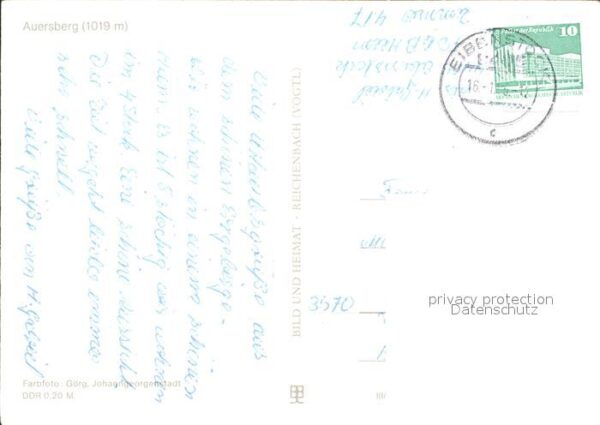 Auersberg (1019 m)
Viele Urlaubsgrüße aus
dem schönen Erzgebirge.
Wir wohnen in einem schönen
Heim. Es ist 8 stöckig wir wohnen
im 4 Stock. Eine schöne Aussicht
Die Zeit vergeht leider immer
sehr schnell.
Viele Grüße von H. Gabriel
Farbfoto: Görg, Johanngeorgenstadt
DDR 0,20 M.
BILD UND HEIMAT · REICHENBACH (VOGTL)
H. Gabriel
Eibenstock
FDGB Heim
Zimmer 417
EIBENSTOCK
16
c
10
Palast der Republik
3570
privacy protection
Datenschutz